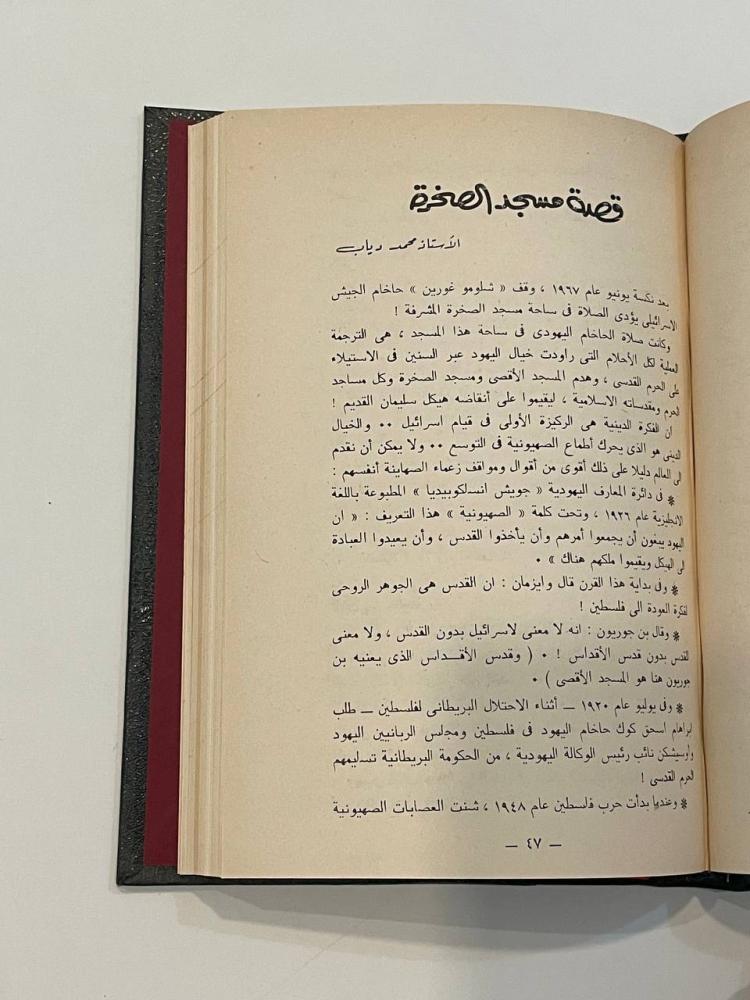 قصة مسجد الصخرة
الأستاذ محمد دياب
بعد نكسة يونيو عام ١٩٦٧ ، وقف « شلومو غورين » حاخام الجيش
الاسرائيلى يؤدى الصلاة فى ساحة مسجد الصخرة المشرفة !
وكانت صلاة الحاخام اليهودى فى ساحة هذا المسجد ، هى الترجمة
العملية لكل الأحلام التى راودت خيال اليهود عبر السنين فى الاستيلاء
على الحرم القدسى ، وهدم المسجد الأقصى ومسجد الصخرة وكل مساجد
الحرم ومقدساته الاسلامية ، ليقيموا على أنقاضه هيكل سليمان القديم !
ان الفكرة الدينية هى الركيزة الأولى فى قيام اسرائيل ٠٠ والخيال
الدينى هو الذى يحرك أطماع الصهيونية فى التوسع ٠٠ ولا يمكن أن نقدم
الى العالم دليلا على ذلك أقوى من أقوال ومواقف زعماء الصهاينة أنفسهم :
* فى دائرة المعارف اليهودية « جويش انسلكوبيديا » المطبوعة باللغة
الانجليزية عام ١٩٢٦ ، وتحت كلمة « الصهيونية » هذا التعريف : « ان
اليهود يبغون أن يجمعوا أمرهم وأن يأخذوا القدس ، وأن يعيدوا العبادة
الى الهيكل ويقيموا ملكهم هناك » ٠
* وفى بداية هذا القرن قال وايزمان : ان القدس هى الجوهر الروحى
لفكرة العودة الى فلسطين !
* وقال بن جوريون : انه لا معنى لاسرائيل بدون القدس ، ولا معنى
للقدس بدون قدس الأقداس ! ٠ ( وقدس الأقـداس الذى يعنيه بن
جوريون هنا هو المسجد الأقصى ) ٠
* وفى يوليو عام ١٩٢٠ — أثناء الاحتلال البريطانى لفلسطين — طلب
ابراهام اسحق كوك حاخام اليهود فى فلسطين ومجلس الربانيين اليهود
وأوسيشكن نائب رئيس الوكالة اليهودية ، من الحكومة البريطانية تسليمهم
الحرم القدسى !
* وعندما بدأت حرب فلسطين عام ١٩٤٨ ، شنت العصابات الصهيونية
— ٤٧ —